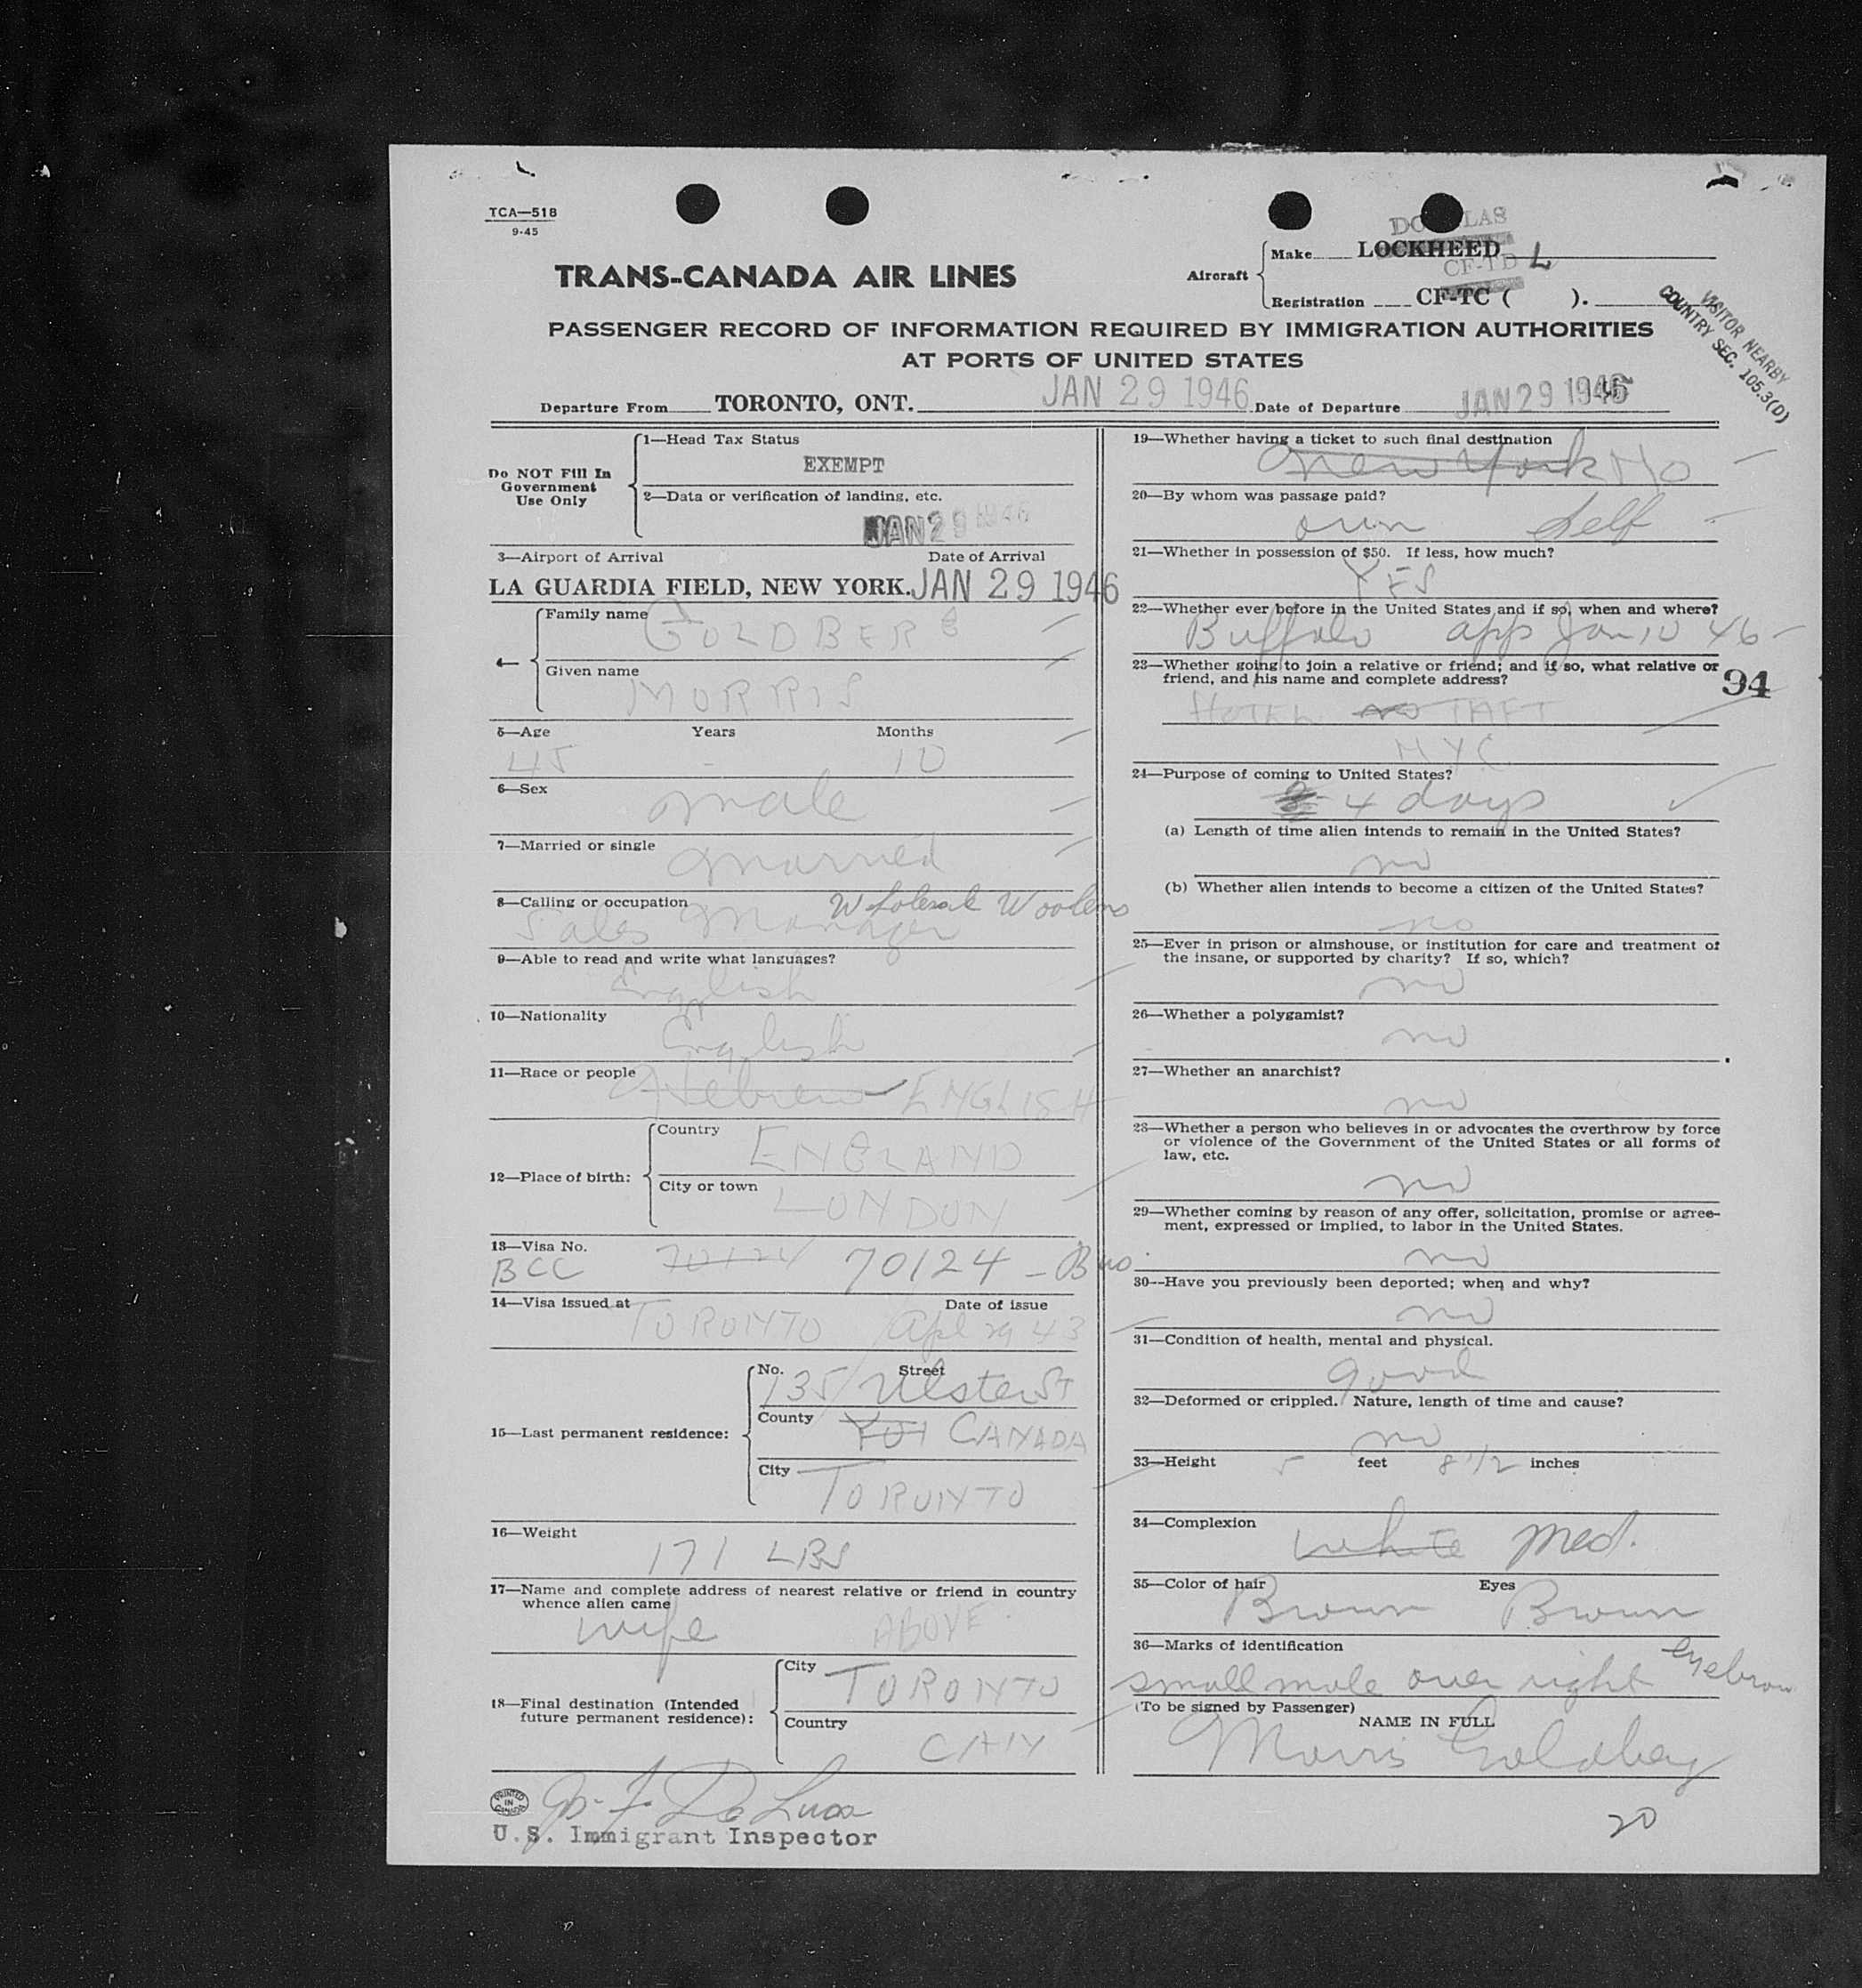 TCA—518
9-45
DOUGLAS
Aircraft Make LOCKHEED
CF-TD L
Registration CF-TC ( ).
TRANS-CANADA AIR LINES
VISITOR NEARBY
COUNTRY SEC. 105.3(D)
PASSENGER RECORD OF INFORMATION REQUIRED BY IMMIGRATION AUTHORITIES
AT PORTS OF UNITED STATES
Departure From TORONTO, ONT. JAN 29 1946 Date of Departure JAN 29 1946
Do NOT Fill In
Government
Use Only
1—Head Tax Status
EXEMPT
2—Data or verification of landing, etc.
JAN 29 1946
3—Airport of Arrival Date of Arrival
LA GUARDIA FIELD, NEW YORK. JAN 29 1946
4— Family name GOLDBERG
Given name
MORRIS
5—Age Years Months
45 - 10
6—Sex
male
7—Married or single
married
8—Calling or occupation Wholesale Woolens
Sales Manager
9—Able to read and write what languages?
English
10—Nationality
English
11—Race or people
Hebrew ENGLISH
12—Place of birth:
Country
ENGLAND
City or town
LONDON
13—Visa No.
BCC 70124 70124 - Bus
14—Visa issued at Date of issue
TORONTO Apl 29 43
15—Last permanent residence:
No. Street
135 Ulster St
County CANADA
City
TORONTO
16—Weight
171 LBS
17—Name and complete address of nearest relative or friend in country
whence alien came
wife ABOVE
18—Final destination (Intended
future permanent residence):
City TORONTO
Country
CAN
PRINTED IN CANADA
U.S. Immigrant Inspector
19—Whether having a ticket to such final destination
New York No
20—By whom was passage paid?
own Self
21—Whether in possession of $50. If less, how much?
YES
22—Whether ever before in the United States and if so, when and where?
Buffalo app Jan 10 46
23—Whether going to join a relative or friend; and if so, what relative or
friend, and his name and complete address?
94
HOTEL no TAFT
N.Y.C.
24—Purpose of coming to United States?
4 days
(a) Length of time alien intends to remain in the United States?
no
(b) Whether alien intends to become a citizen of the United States?
no
25—Ever in prison or almshouse, or institution for care and treatment of
the insane, or supported by charity? If so, which?
no
26—Whether a polygamist?
no
27—Whether an anarchist?
no
28—Whether a person who believes in or advocates the overthrow by force
or violence of the Government of the United States or all forms of
law, etc.
no
29—Whether coming by reason of any offer, solicitation, promise or agree-
ment, expressed or implied, to labor in the United States.
no
30—Have you previously been deported; when and why?
no
31—Condition of health, mental and physical.
good
32—Deformed or crippled. Nature, length of time and cause?
no
33—Height 5 feet 8 1/2 inches
34—Complexion
white Med.
35—Color of hair Eyes
Brown Brown
36—Marks of identification
small mole over right eyebrow
(To be signed by Passenger)
NAME IN FULL
Morris Goldberg
20